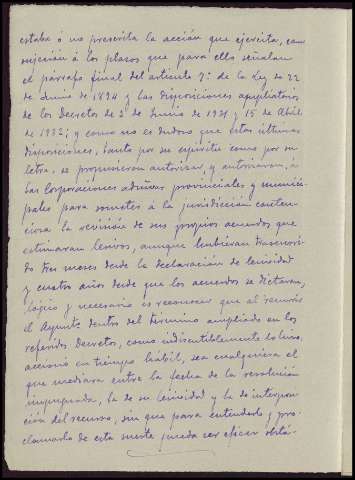 estaba ó no prescrita la acción que ejercita, con
sujeción á los plazos que para ello señalan
el párrafo final del artículo 7º de la Ley de 22
de Junio de 1894 y las disposiciones ampliatorias
de los Decretos de 2 de Junio de 1931 y 15 de Abril
de 1932; y como no es dudoso que estas últimas
disposiciones, tanto por su espíritu como por su
letra, se propusieron autorizar y autorizaron, á
las Corporaciones administrativas provinciales y munici-
pales para someter á la jurisdicción conten-
ciosa la revisión de sus propios acuerdos que
estimaran lesivos, aunque hubieran transcurri-
do tres meses desde la declaración de lesividad
y cuatro años desde que los acuerdos se dictaron,
lógico y necesario es reconocer que al recurrir
el Ayuntº dentro del término ampliado en los
referidos Decretos, como indiscutiblemente lo hizo,
accionó en tiempo hábil, sea cualquiera el
que mediara entre la fecha de la resolución
impugnada, la de su lesividad y la de interposi-
ción del recurso, sin que para entenderlo y pro-
clamarlo de esta suerte pueda ser eficaz obstá-